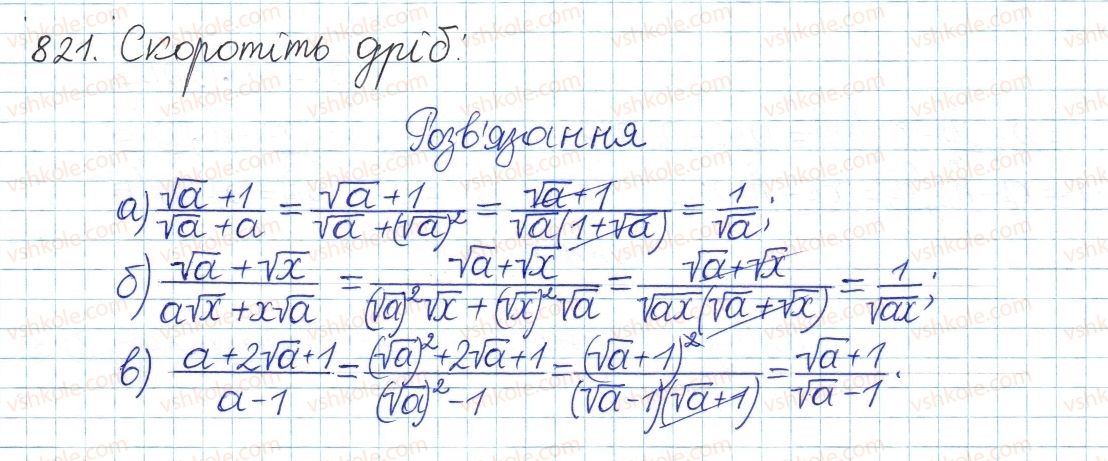 821. Скоротіть дріб:
Розв'язання
а) (√a + 1)/(√a + a) = (√a + 1)/(√a + (√a)²) = (√a + 1)/(√a(1 + √a)) = 1/√a;
б) (√a + √x)/(a√x + x√a) = (√a + √x)/((√a)²√x + (√x)²√a) = (√a + √x)/(√ax(√a + √x)) = 1/√ax;
в) (a + 2√a + 1)/(a - 1) = ((√a)² + 2√a + 1)/((√a)² - 1) = (√a + 1)²/((√a - 1)(√a + 1)) = (√a + 1)/(√a - 1).